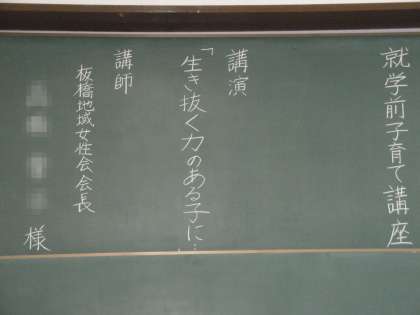 就学前子育て講座
講演
「生き抜く力のある子に…」
講師
板橋地域女性会会長
様